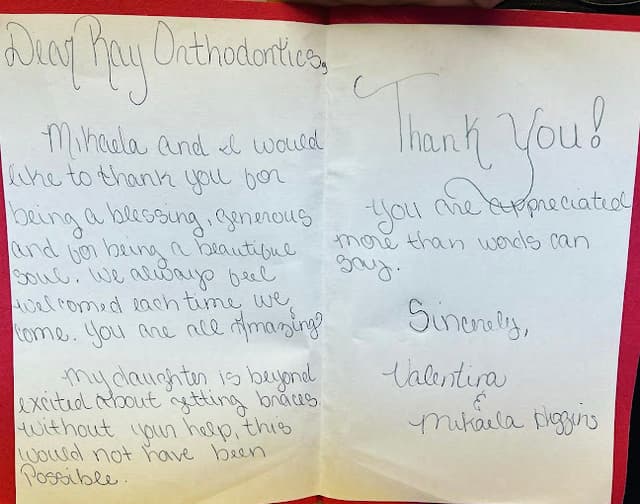 Dear Ray Orthodontics,
Mikaela and I would
like to thank you for
being a blessing, generous
and for being a beautiful
soul. We always feel
welcomed each time we
come. You are all Amazing!
My daughter is beyond
excited about getting braces
without your help, this
would not have been
Possible.
Thank You!
You are appreciated
more than words can
say.
Sincerely,
Valentina
&
Mikaela Higgins